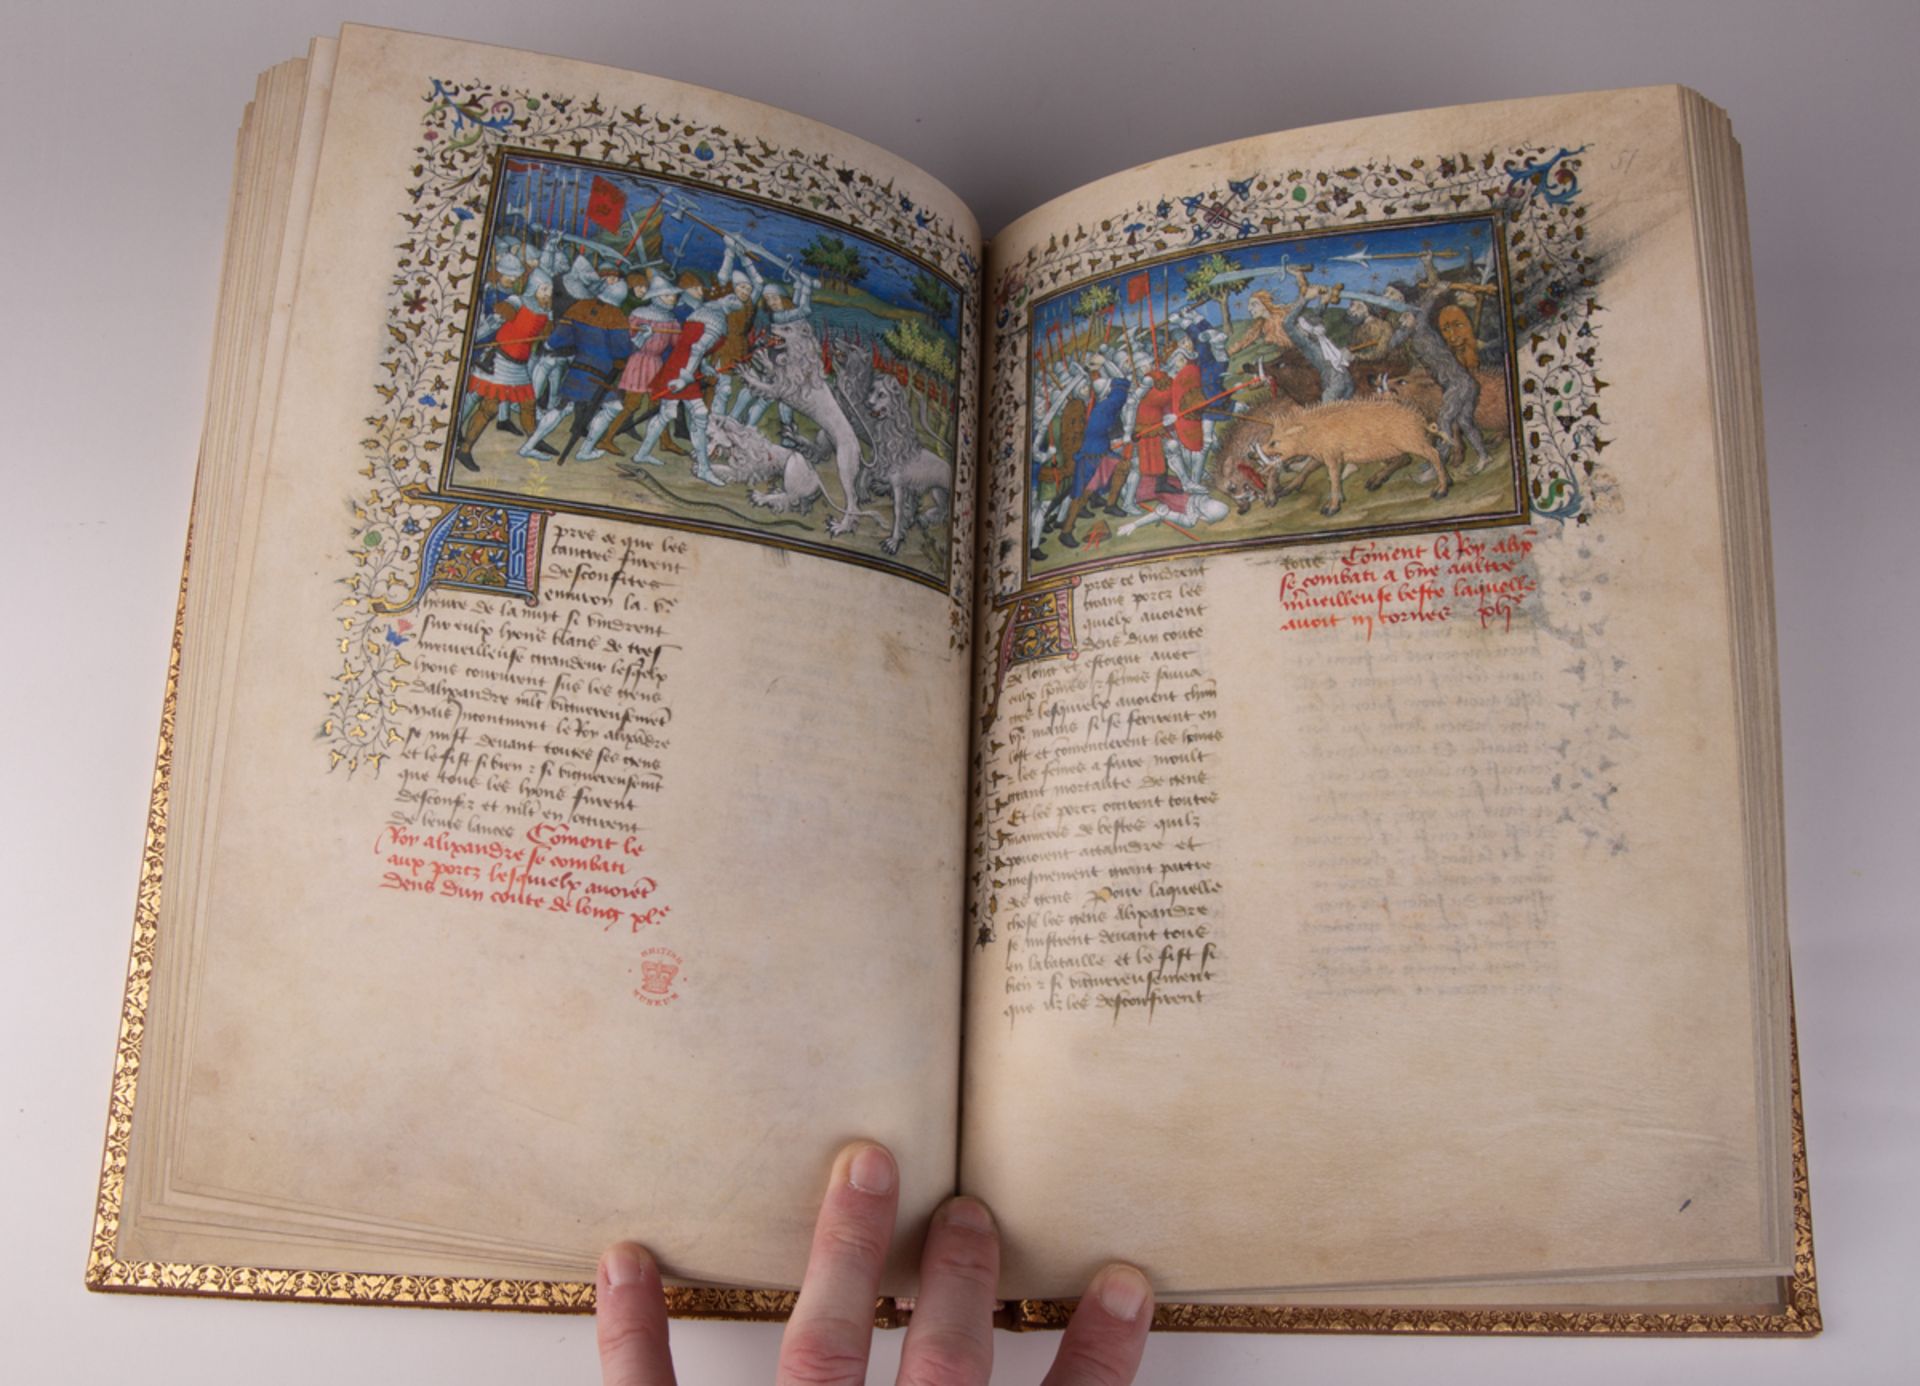 Apres ce que les
cancres furent
desconfites
environ la .vͤ.
heure de la nuit si vindrent
sur eulx lyons blans de tres
merveilleuse grandeur lesqlx
lyons coururent sus les gens
dalixandre mlt vigueureusemēt
Mais incontinent le Roy alixādre
se mist devant toutes ses gens
et le fist si bien ⁊ si vigueureusemt
que tous les lyons furent
desconfiz et mlt en occirent
de leurs lances Cōment le
Roy alixandre se combati
aux porcz lesquelx avoiēt
dens dun coute de long xlͤ.
BRITISH
MUSEUM
51
Apres ce vindrent
grans porcz les
quielx avoient
dens dun coute
de long et estoient avec
eulx hōmes ⁊ femes sauva
ges lesquelx avoient chūn
vj mains si se ferirent en
lost et cōmencierent les hōmes
⁊ les femes a faire moult
grant mortalite de gens
Et les porcz occirent toutes
manieres de bestes quilz
pouoient attaindre et
mesmement grant partie
de gens Pour laquelle
chose les gens Alixandre
se mistrent devant tous
en la bataille et le fist si
bien ⁊ si vigueureusement
que ilz les desconfirent
tous Cōment le Roy alixͤ
se combati a vne aultre
mͬveilleuse beste laquelle
avoit iij cornes xljͤ